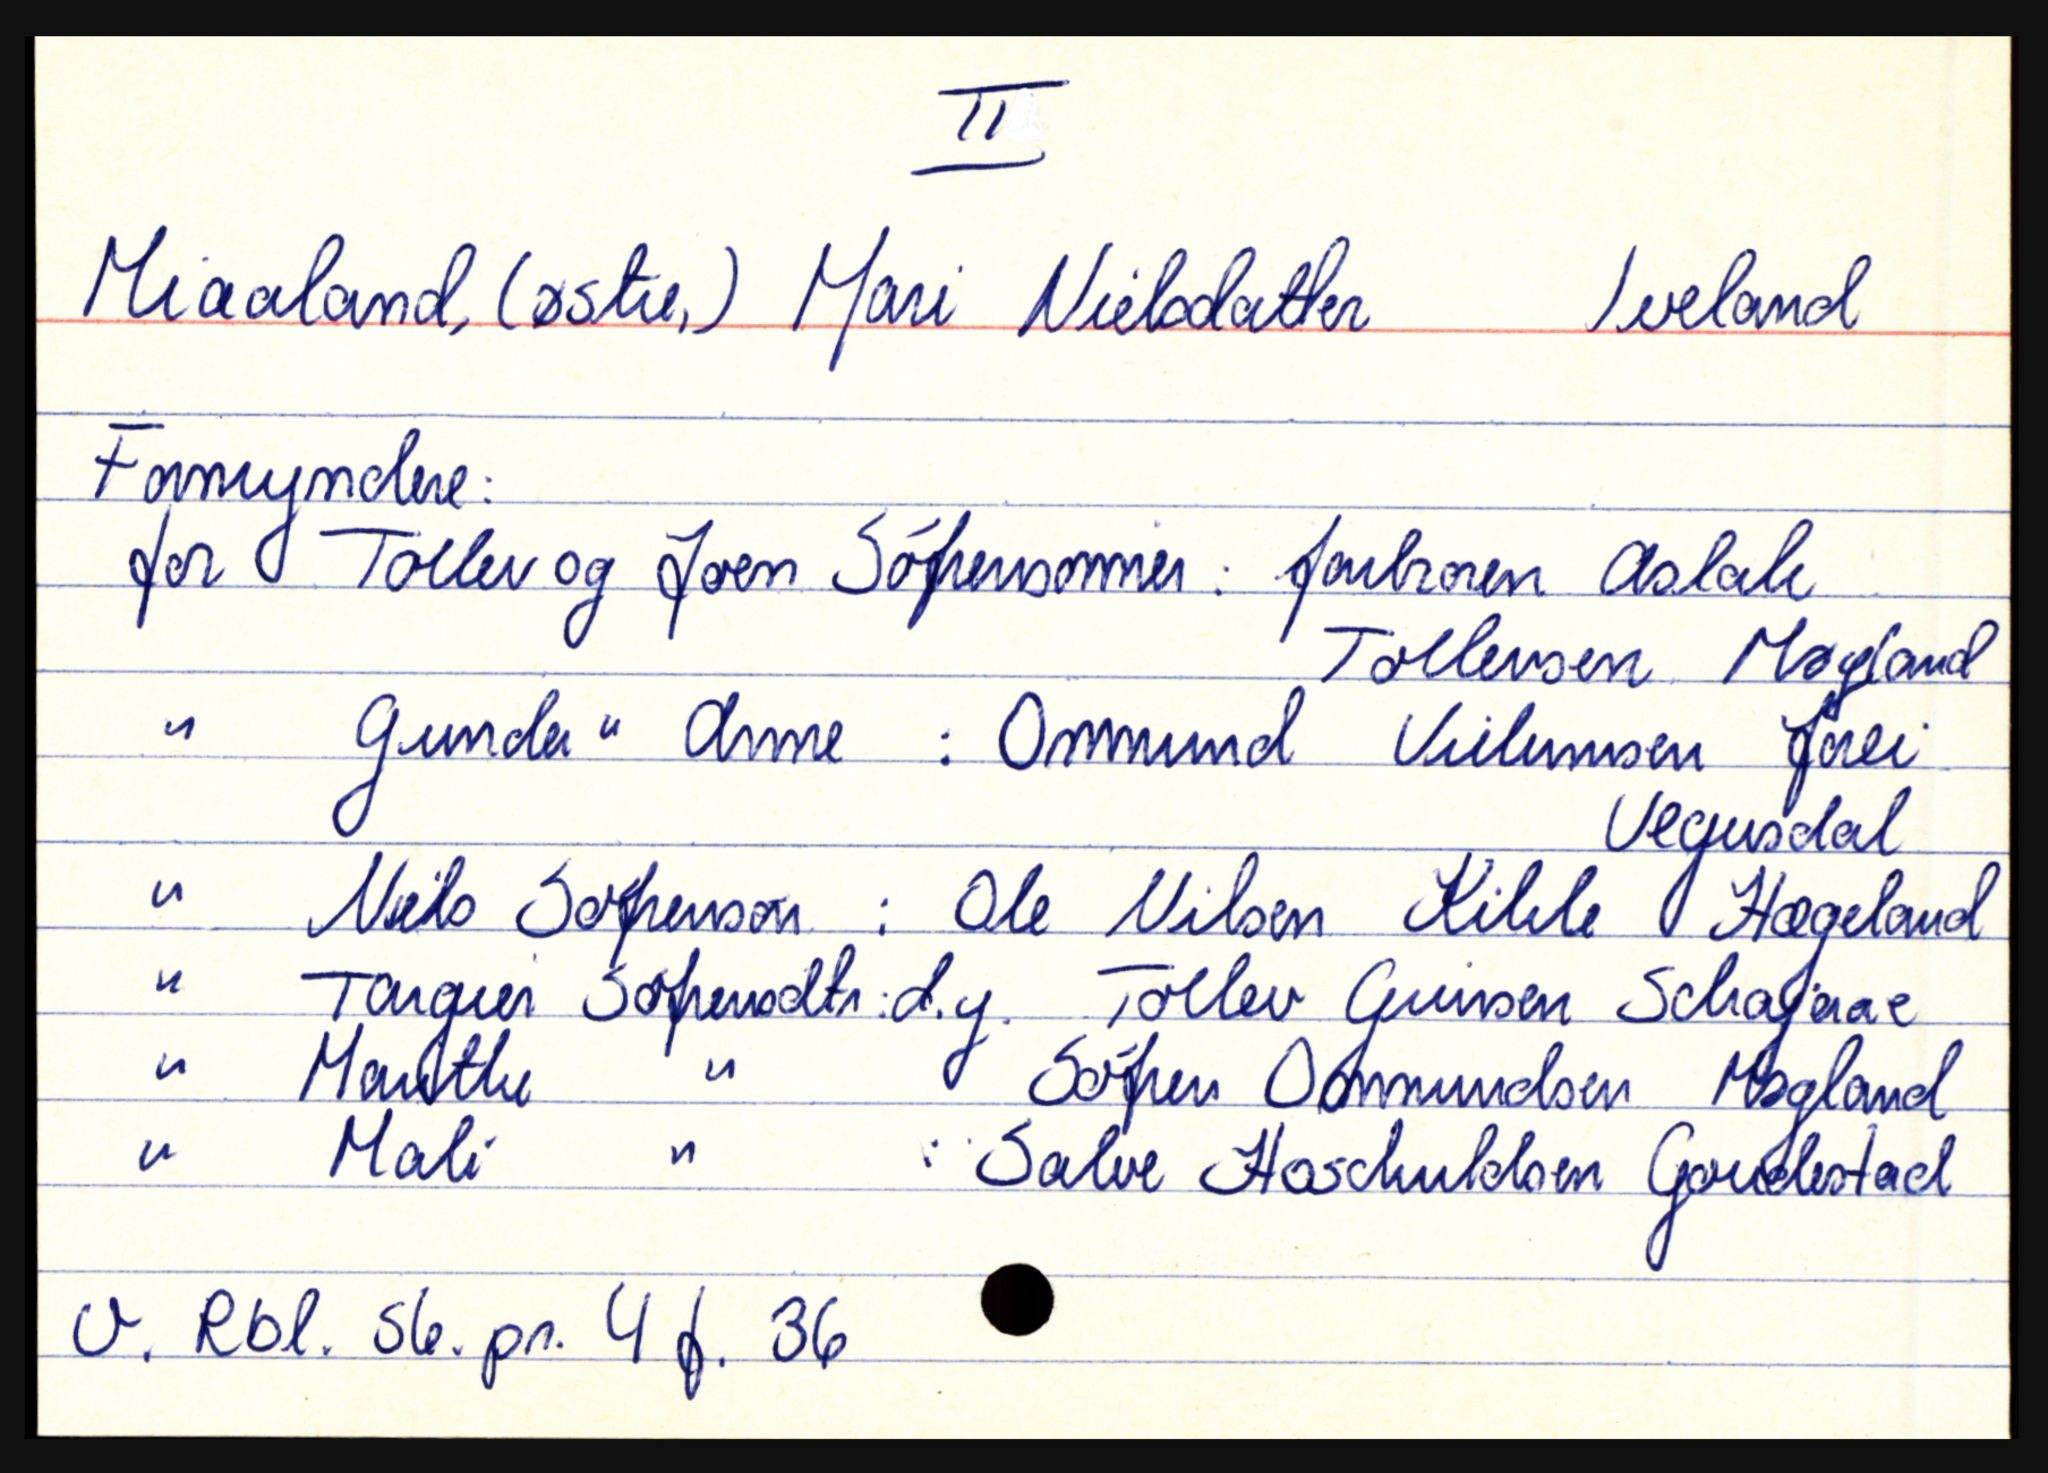 II
Miaaland, (østre,) Mari Nielsdatter Iveland
Formyndere:
for Tollev og Joen Söfrensønner: farbroren Aslak
Tollevsen Møgland
" Gunder " Anne : Ommund Vilumsen Frei
Vegusdal
" Niels Söfrensøn : Ole Nilsen Kihle Hægeland
" Targier Söfrensdtr: d.y. Tollev Guinsen Schajaae
" Marthe " Söfren Ommundsen Møgland
" Mali " : Salve Haschuldsen Goudestad
V. Rbl. Sk. pr. 4 f. 36